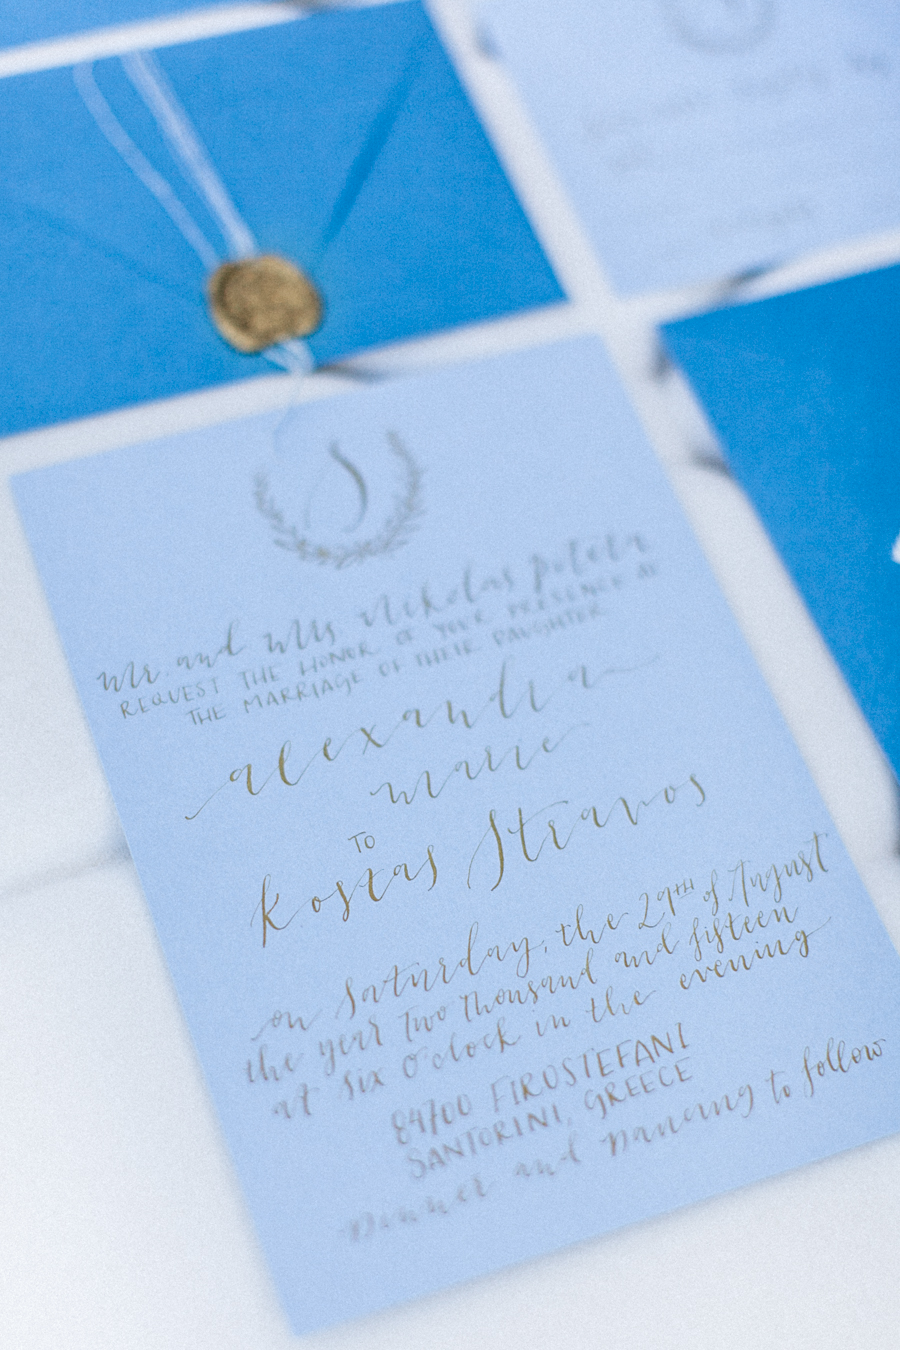 S
Mr. and Mrs. Nikolas
REQUEST THE HONOR OF YOUR PRESENCE AT
THE MARRIAGE OF THEIR DAUGHTER
alexandra
marie
TO
Kostas Stravos
on Saturday, the 29TH of August
the year Two Thousand and fifteen
at six O'clock in the evening
84700 FIROSTEFANI
SANTORINI, GREECE
Dinner and Dancing to follow